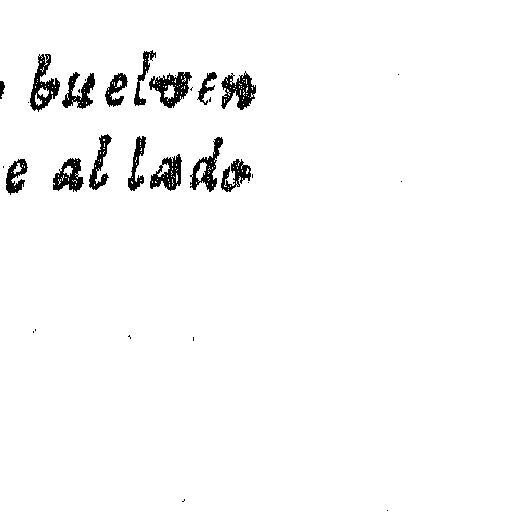 buelven
e al lado